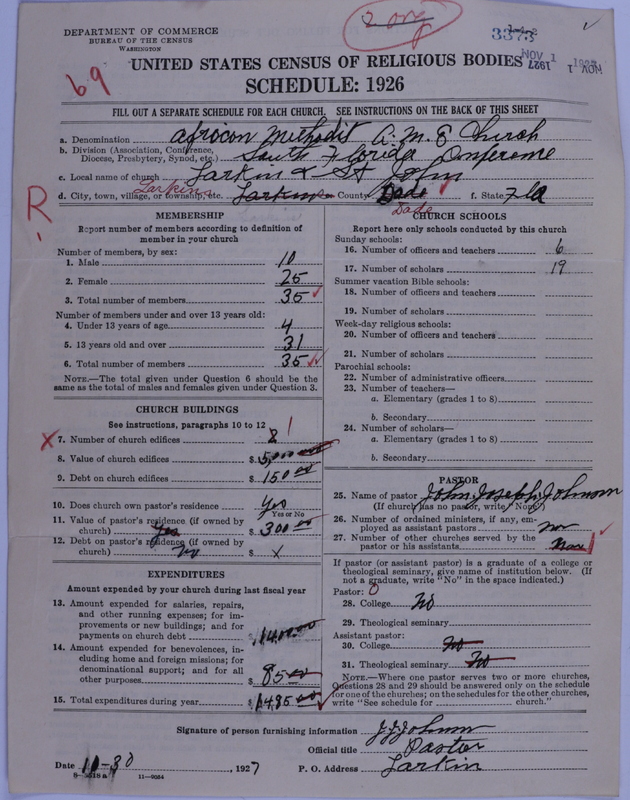 DEPARTMENT OF COMMERCE
BUREAU OF THE CENSUS
WASHINGTON
3373
NOV 1 1927
69
UNITED STATES CENSUS OF RELIGIOUS BODIES
SCHEDULE: 1926
FILL OUT A SEPARATE SCHEDULE FOR EACH CHURCH. SEE INSTRUCTIONS ON THE BACK OF THIS SHEET
a. Denomination African Methodist A. M. E Church
b. Division (Association, Conference, Diocese, Presbytery, Synod, etc.) South Florida Conference
c. Local name of church Larkin & St John
d. City, town, village, or township, etc. Larkin Larkin County Dade Dade f. State Fla
R
MEMBERSHIP
Report number of members according to definition of
member in your church
Number of members, by sex:
1. Male 10
2. Female 25
3. Total number of members 35
Number of members under and over 13 years old:
4. Under 13 years of age 4
5. 13 years old and over 31
6. Total number of members 35
NOTE.—The total given under Question 6 should be the
same as the total of males and females given under Question 3.
CHURCH BUILDINGS
See instructions, paragraphs 10 to 12
X 7. Number of church edifices 2 1
8. Value of church edifices $ 5,000 00
9. Debt on church edifices $ 150 00
10. Does church own pastor's residence Yes
Yes or No
11. Value of pastor's residence (if owned by
church) Yes $ 300 00
12. Debt on pastor's residence (if owned by
church) No $ X
EXPENDITURES
Amount expended by your church during last fiscal year
13. Amount expended for salaries, repairs,
and other running expenses; for im-
provements or new buildings; and for
payments on church debt $ 1400.00
14. Amount expended for benevolences, in-
cluding home and foreign missions; for
denominational support; and for all
other purposes $ 85 00
15. Total expenditures during year $ 1485 00
CHURCH SCHOOLS
Report here only schools conducted by this church
Sunday schools:
16. Number of officers and teachers 6
17. Number of scholars 19
Summer vacation Bible schools:
18. Number of officers and teachers
19. Number of scholars
Week-day religious schools:
20. Number of officers and teachers
21. Number of scholars
Parochial schools:
22. Number of administrative officers
23. Number of teachers—
a. Elementary (grades 1 to 8)
b. Secondary
24. Number of scholars—
a. Elementary (grades 1 to 8)
b. Secondary
PASTOR
25. Name of pastor John Joseph Johnson
(If church has no pastor, write "None")
26. Number of ordained ministers, if any, em-
ployed as assistant pastors
27. Number of other churches served by the
pastor or his assistants
If pastor (or assistant pastor) is a graduate of a college or
theological seminary, give name of institution below. (If
not a graduate, write "No" in the space indicated.)
Pastor: 0
28. College No
29. Theological seminary
Assistant pastor:
30. College No
31. Theological seminary No
NOTE.—Where one pastor serves two or more churches,
Questions 28 and 29 should be answered only on the schedule
for one of the churches; on the schedules for the other churches,
write "See schedule for church."
Signature of person furnishing information J J Johnson
Official title Pastor
Date 10-30, 1927 P. O. Address Larkin
8-5518a 11-9054